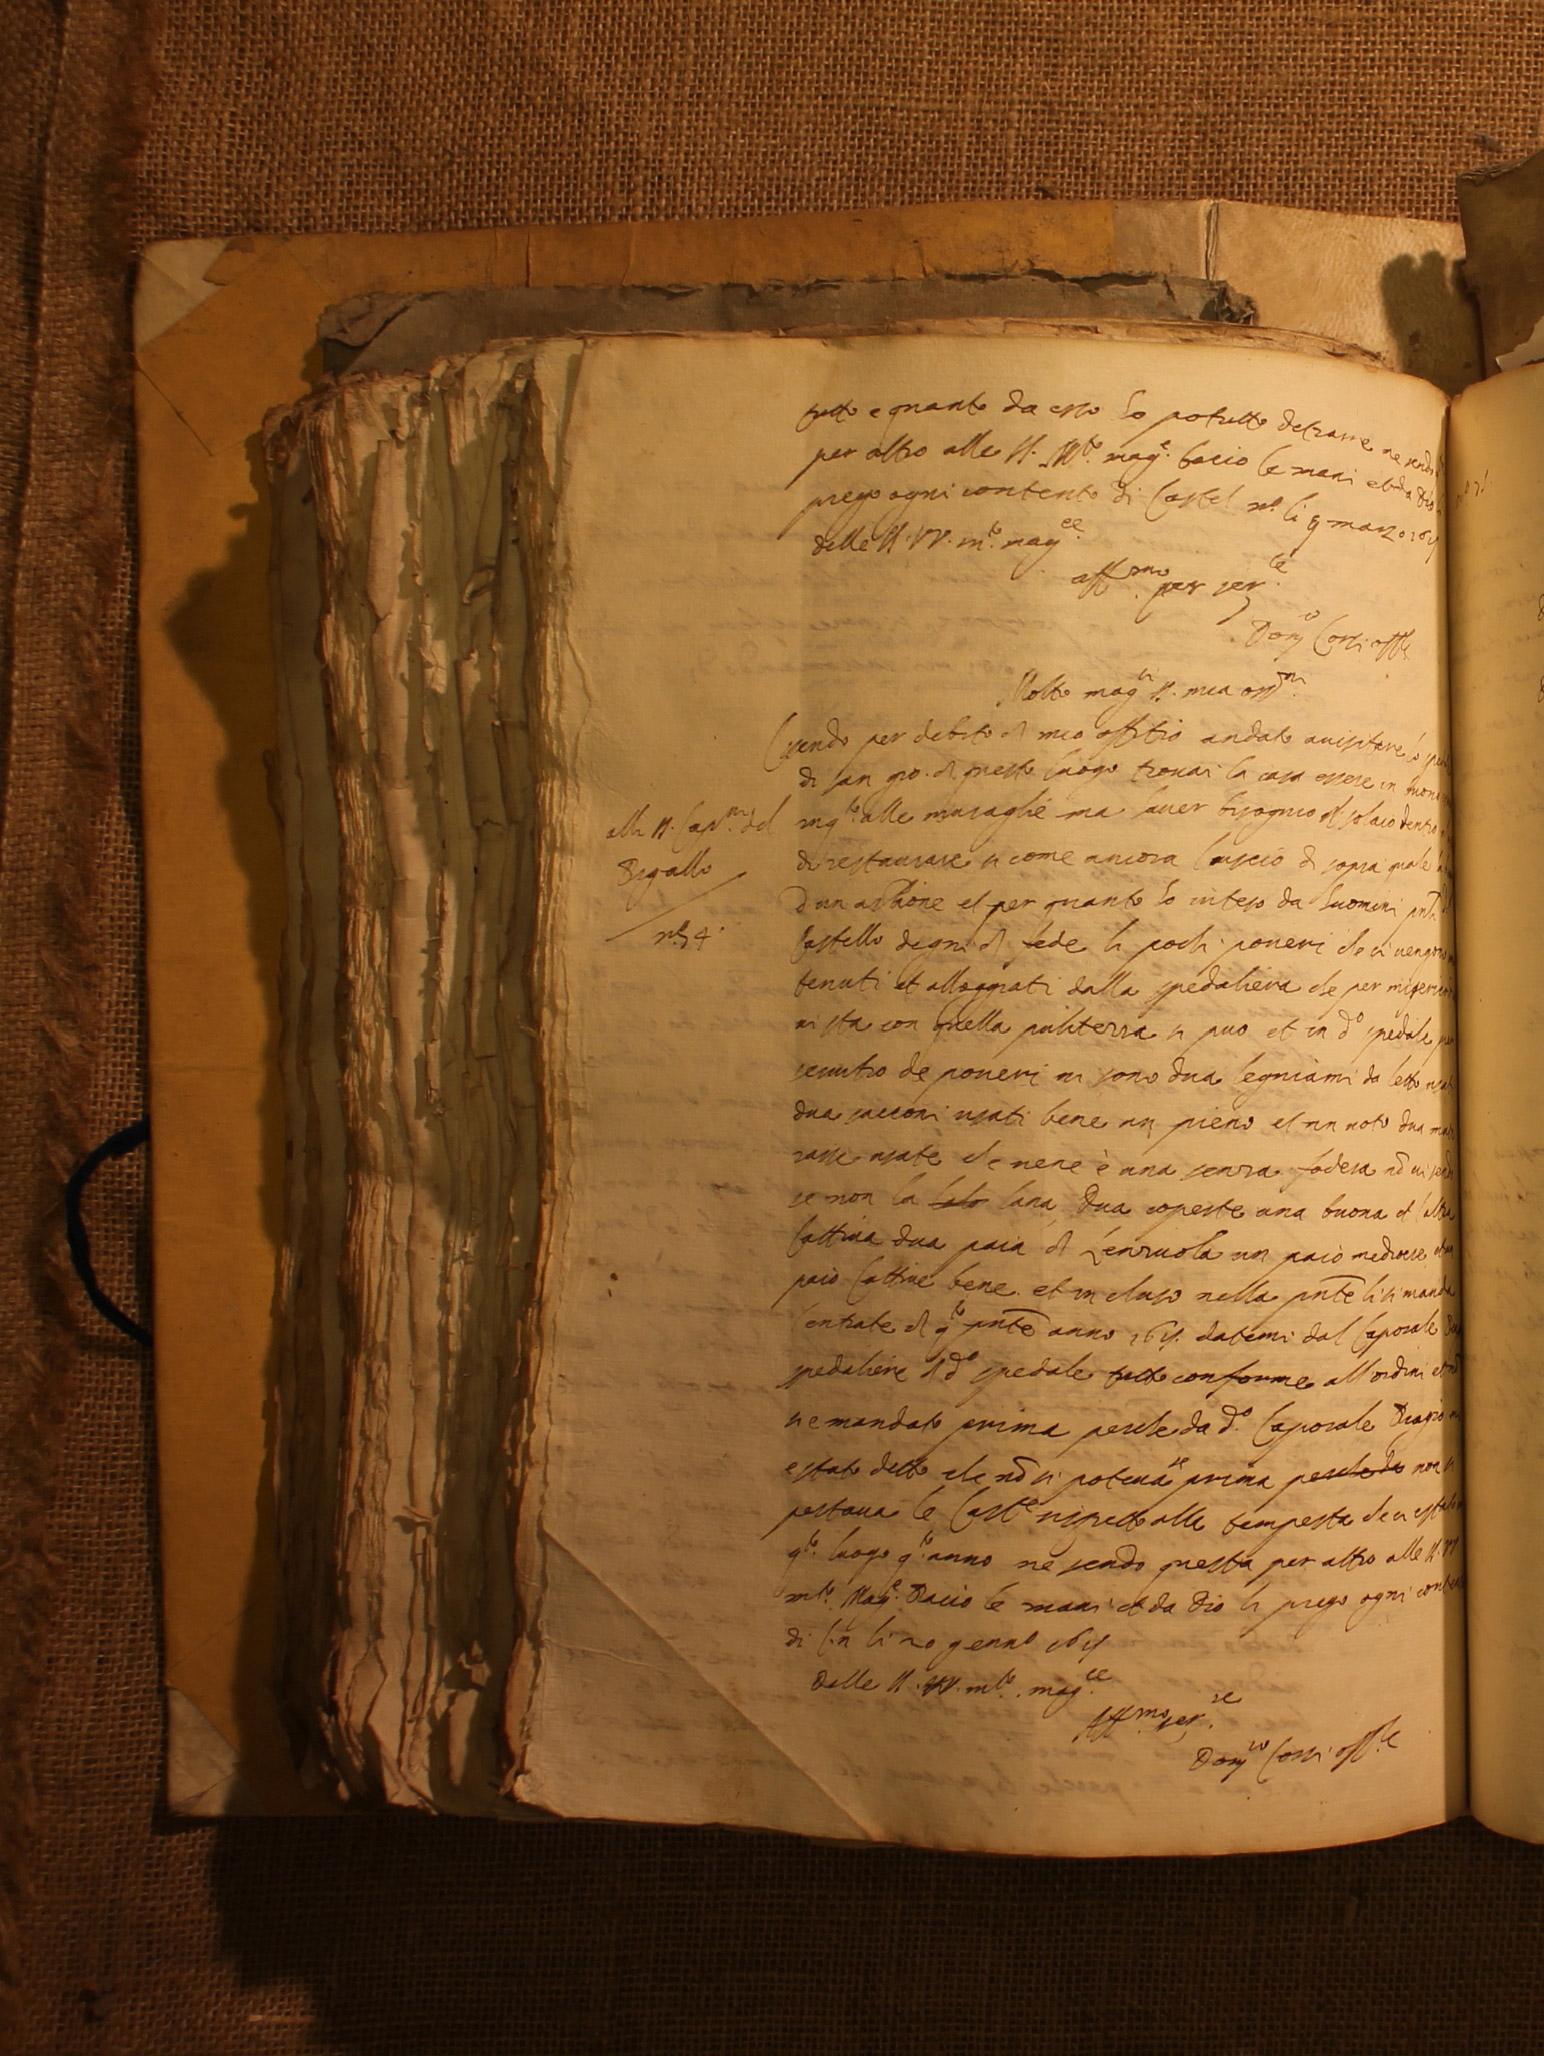 tutto e quanto da esso ho potutto detrarre ne sendo
per altro alle SS. VV. mto. mage. bacio le mani et da Dio
prego ogni contento di Castel no. li 9 marzo 16
delle SS. VV. mto. magce.
affmo. per serle
Domco Corsi offle
Molto magci SS. mia ossmi.
Essendo per debito di mio offitio andato avisitare lo
di san gio. di questo luogo trovai la casa essere in buona
mqto alle muraglie ma haver bisognio di solaio dentro
di restaurare si come ancora luscio di sopra quale
dun arpione et per quanto ho inteso da huomini
Castello degni di fede li pochi poveri che vi vengono
tenuti et alloggiati dalla spedaliera che per
vi sta con quella puliterza si puo et in do spedale per
servitio de poveri vi sono dua legniami da letto usati
dua sacconi usati bene un pieno et un voto dua mate
rasse usate che nene è una senza fodera nō vi
se non la lana, dua coperte una buona et laltra
cattiva dua paia di Lenzuola un paio mediocre et un
paio cattive bene. et incluso nella pnte li si manda
lentrate di qto pnte anno 16 datemi dal Caporale
spedaliere di do spedale tutto conforme all ordini et nō
si e mandato prima perche da do. Caporale Biagio
e stato detto che nō si poteva prima perche da non si
pestava le Caste rispetto alle tempesta che ci e stato
qto. luogo qto anno ne sendo questa per altro alle SS. VV
mto. Mage. Bacio le mani et da Dio li prego ogni contento
di C.n li 20 genno 16
Delle SS. VV. mto. magce
Affmo ser.re
Domco Corsi offle
alli SS. Capni. del
Bigallo
no 4.